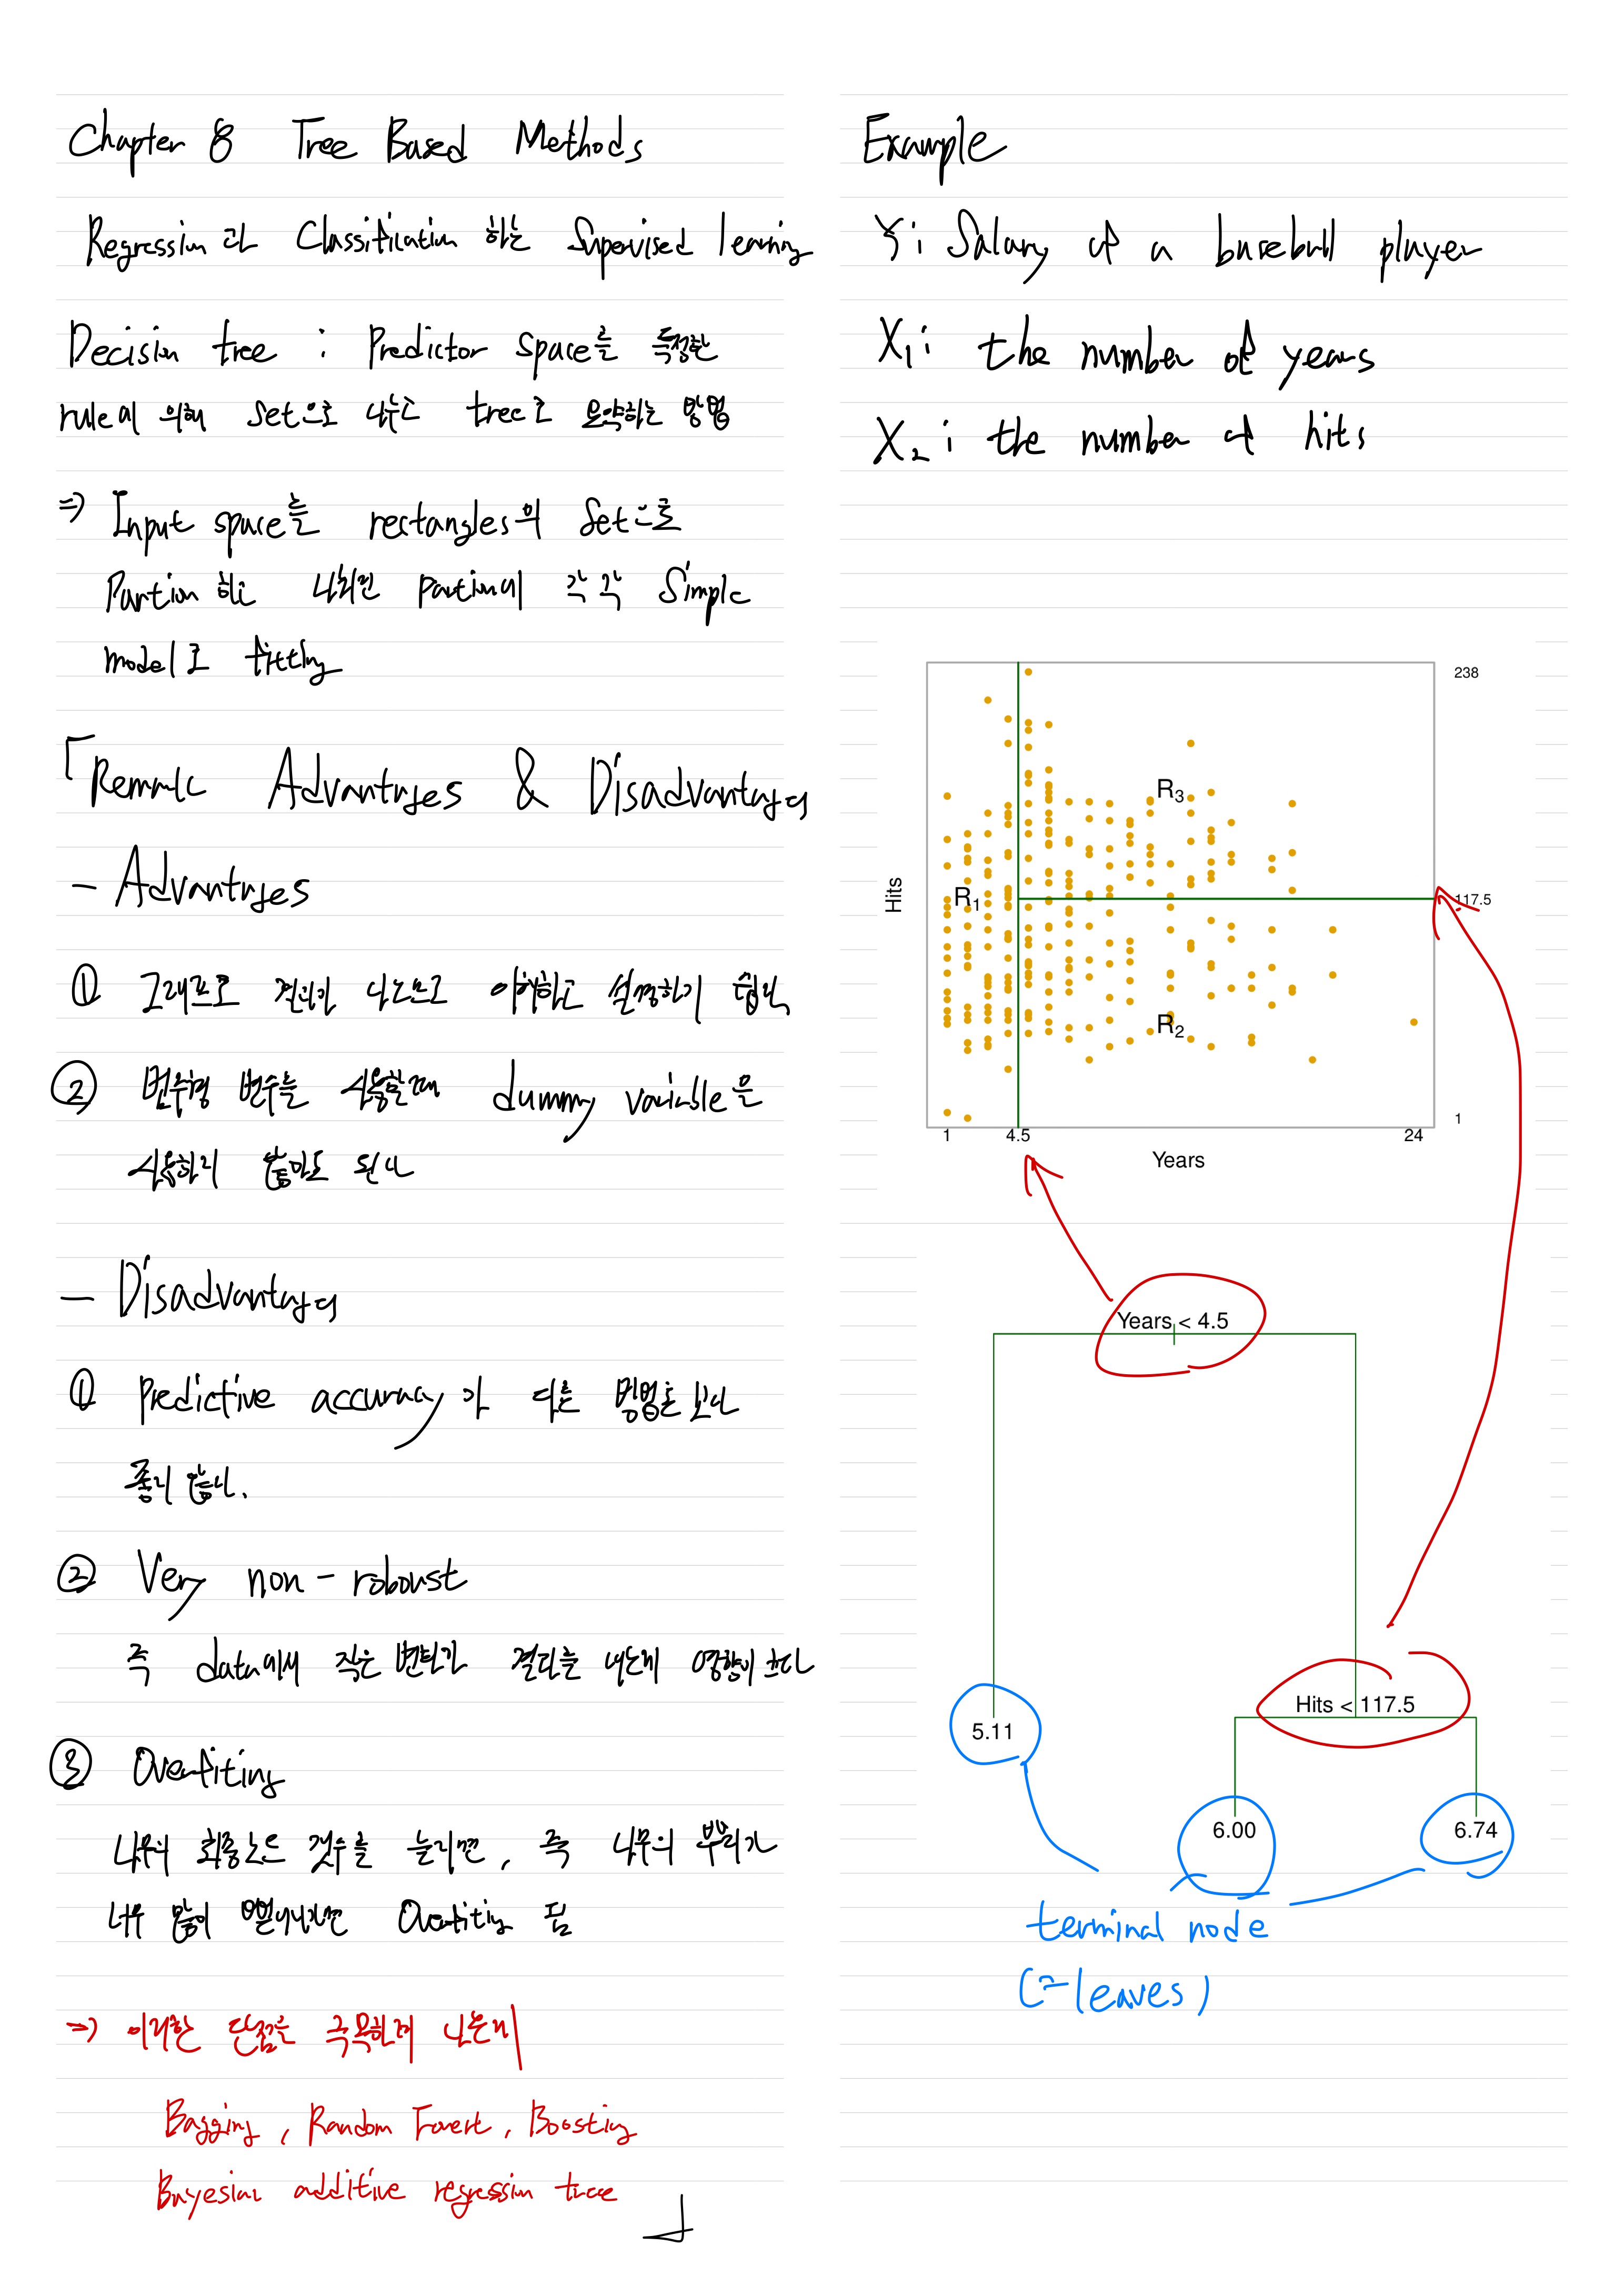 Chapter 8 Tree Based Methods
Regression과 Classification 하는 Supervised learning
Decision tree : Predictor space를 특정한
rule에 의해 set으로 나누고 tree로 요약하는 방법
⇒ Input space를 rectangles의 set으로
Partion 하고 나뉘면 partion에 각각 Simple
model로 fitting
「Remark Advantages & Disadvantages
- Advantages
① 그래프로 결과가 나오므로 이해하고 설명하기 쉽다
② 범주형 변수를 사용할때 dummy variable을
사용하지 않아도 된다
- Disadvantages
① Predictive accuracy가 다른 방법들보다
좋지 않다.
② Very non-roboust
즉 data에서 작은 변화가 결과를 내는데 영향이 크다
③ Overfiting
나무의 최종노드 갯수를 늘리면, 즉 나무의 뿌리가
너무 많이 뻗어나가면 Overfiting 됨
⇒ 이러한 단점을 극복하려 나온게
Bagging, Random Forest, Boosting
Bayesian additive regression tree
Example
Y: Salary of a baseball player
X₁: the number of years
X₂: the number of hits
238
R3
Hits
R1
117.5
R2
1
1 4.5 24
Years
Years < 4.5
Hits < 117.5
5.11
6.00 6.74
terminal node
(=leaves)